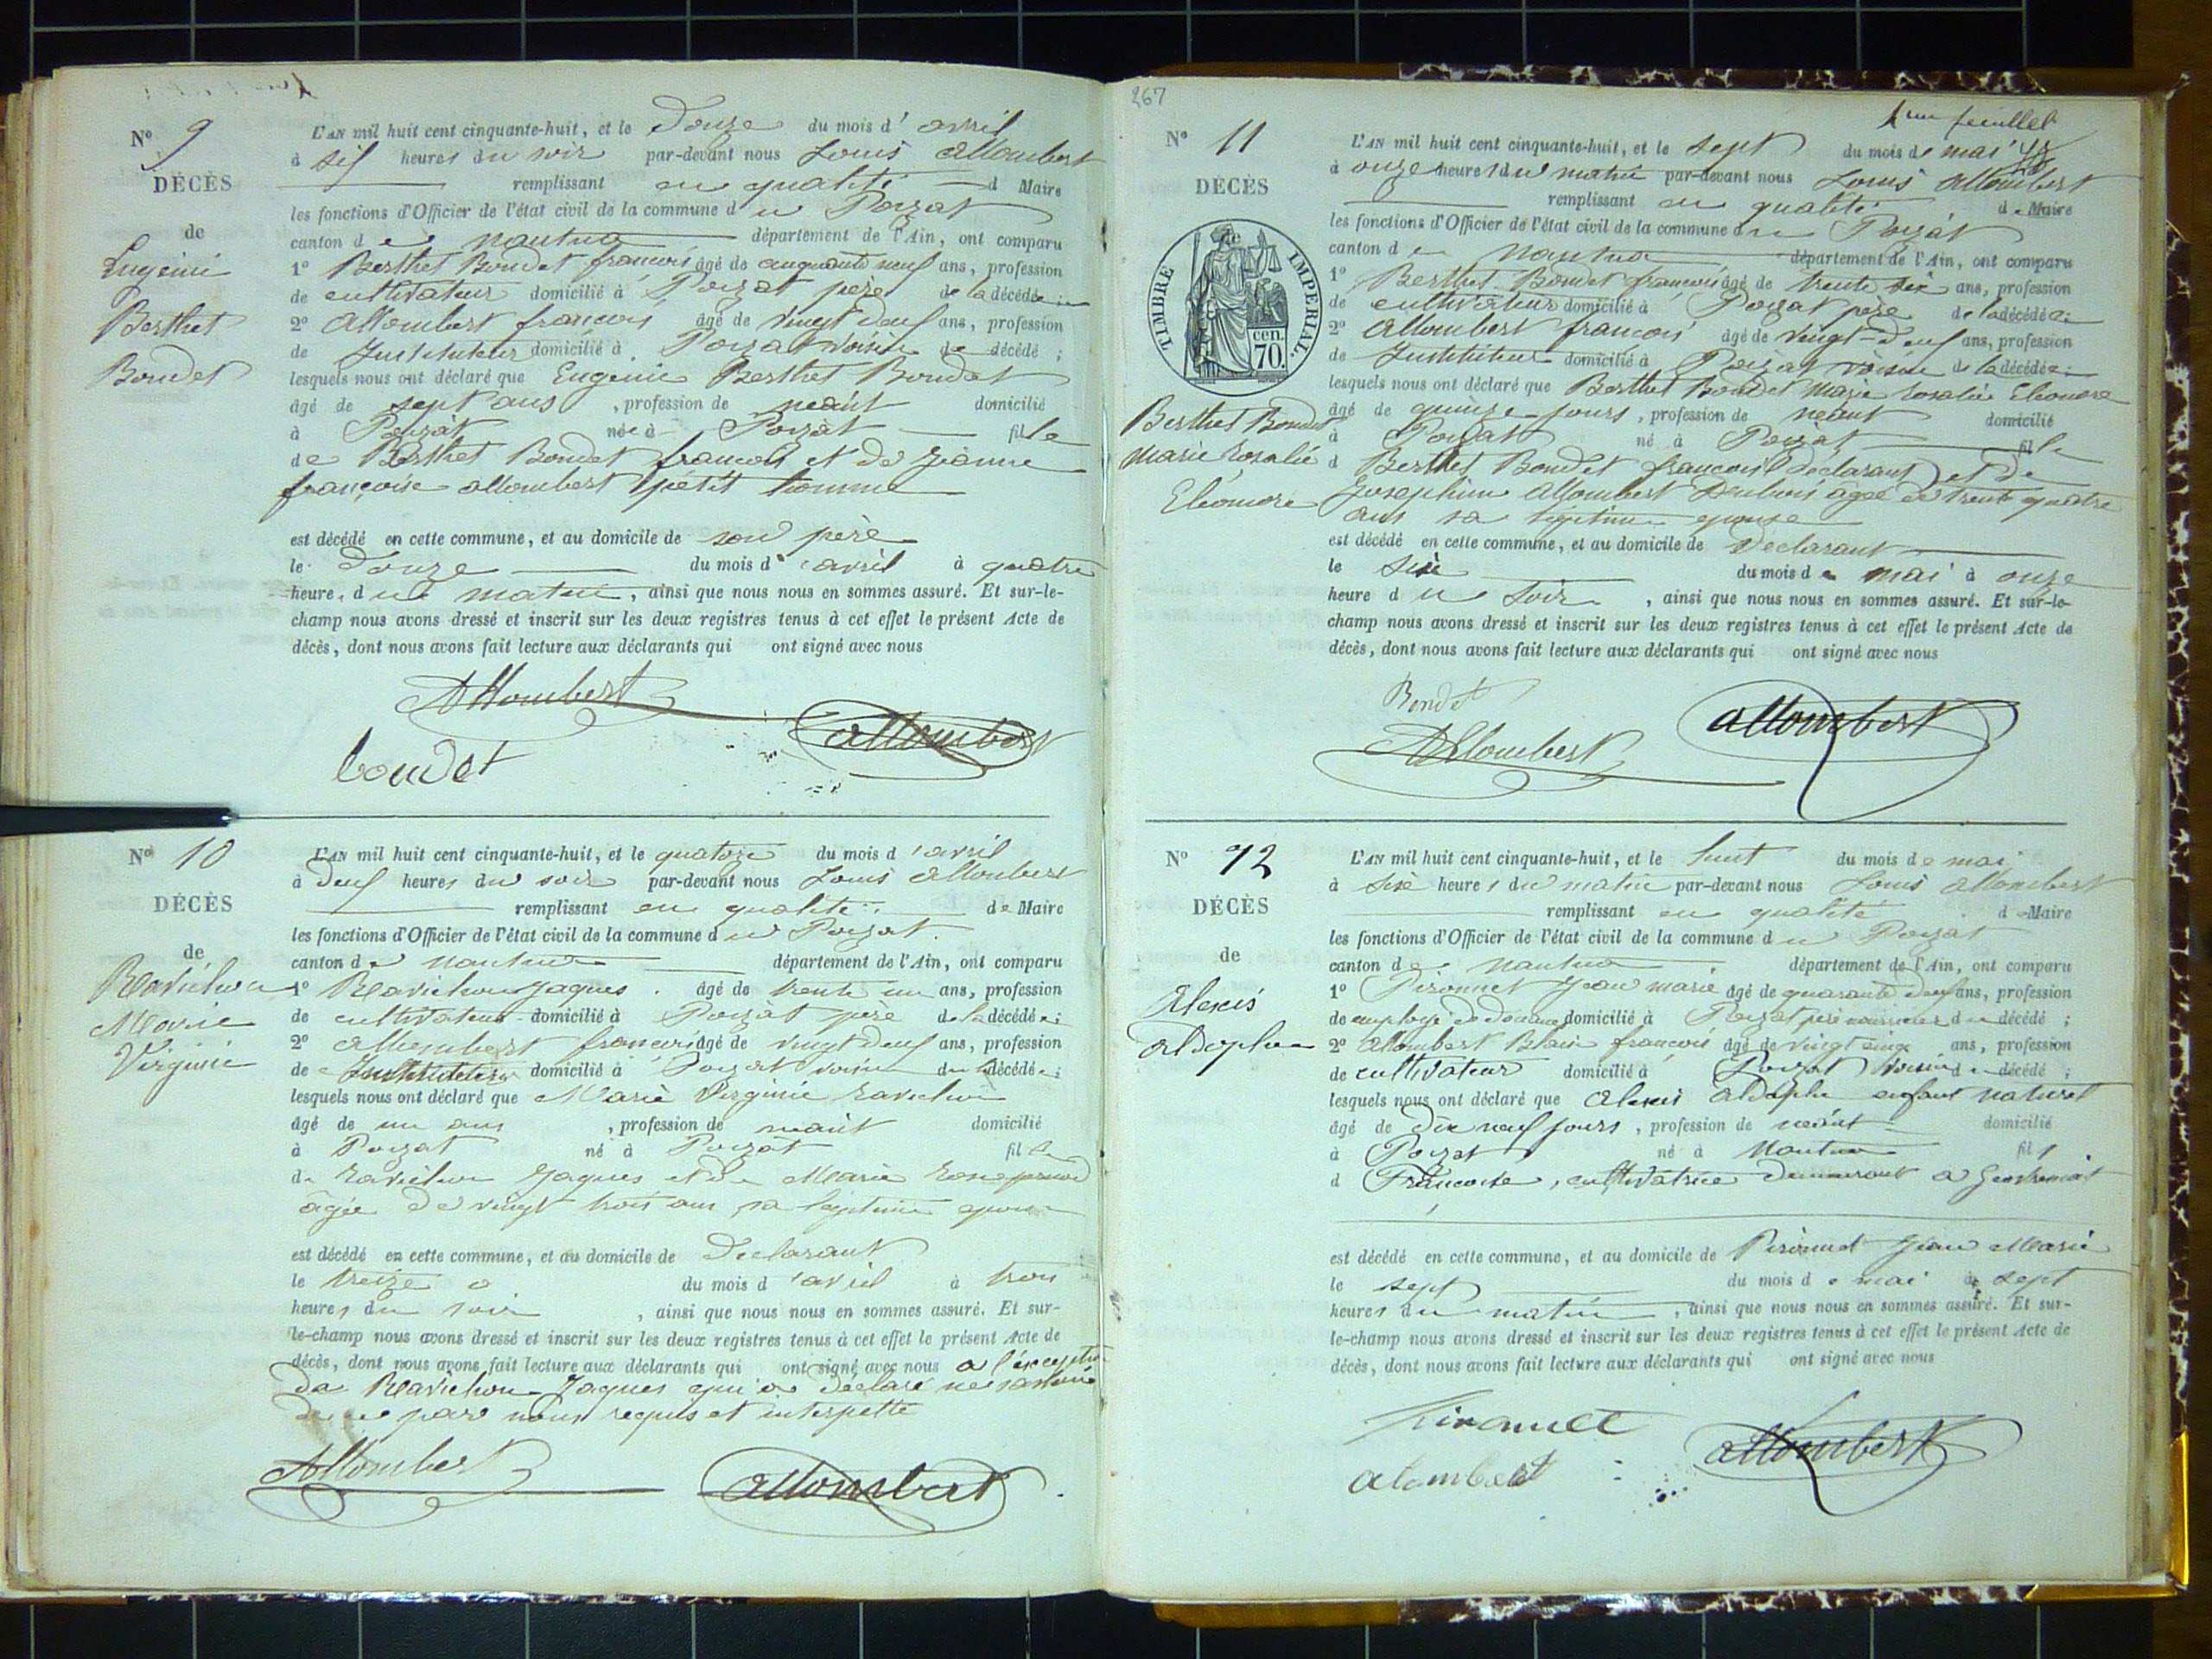 N° 9
DÉCÈS
de
Eugénie
Berthet
Boudet
L'AN mil huit cent cinquante-huit, et le Douze du mois d' avril
à six heures du soir par-devant nous Louis Allombert
remplissant en qualité d Maire
les fonctions d'Officier de l'état civil de la commune du Poizat
canton de Nantua département de l'Ain, ont comparu
1° Berthet Boudet francois âgé de cinquante neuf ans, profession
de cultivateur domicilié à Poizat père de la décédée
2° Allombert francois âgé de vingt deux ans, profession
de Instituteur domicilié à Poizat voisin de décédé ;
lesquels nous ont déclaré que Eugenie Berthet Boudet
âgé de sept ans , profession de néant domicilié
à Poizat née à Poizat fille
de Berthet Boudet francois et de Jeanne
françoise allombert petit homme
est décédé en cette commune, et au domicile de son père
le Douze du mois d' avril à quatre
heure, du matin, ainsi que nous nous en sommes assuré. Et sur-le-
champ nous avons dressé et inscrit sur les deux registres tenus à cet effet le présent Acte de
décès, dont nous avons fait lecture aux déclarants qui ont signé avec nous
Allombert
allombert
boudet
N° 10
DÉCÈS
de
Ravichon
Marie
Virginie
L'AN mil huit cent cinquante-huit, et le quatorze du mois d'avril
à deux heures du soir par-devant nous Louis Allombert
remplissant en qualité de Maire
les fonctions d'Officier de l'état civil de la commune du Poizat
canton de Nantua département de l'Ain, ont comparu
1° Ravichon Jaques âgé de trente un ans, profession
de cultivateur domicilié à Poizat père de la décédée
2° Allombert francois âgé de vingt deux ans, profession
de Instituteur domicilié à Poizat voisin de la décédée
lesquels nous ont déclaré que Marie Virginie Ravichon
âgé de un ans , profession de néant domicilié
à Poizat né à Poizat fille
de Ravichon Jaques et de Marie Rose
âgée de vingt trois ans sa légitime epouse
est décédé en cette commune, et au domicile de Declarant
le treize du mois d'avril à trois
heures du soir , ainsi que nous nous en sommes assuré. Et sur-
le-champ nous avons dressé et inscrit sur les deux registres tenus à cet effet le présent Acte de
décès, dont nous avons fait lecture aux déclarants qui ont signé avec nous a l'exception
de Ravichon Jaques qui a déclaré ne
de ce par nous requis et interpellé
Allombert
allombert
267
feuillet
N° 11
DÉCÈS
de
TIMBRE IMPERIAL.
70. cen.
Berthet Boudet
Marie Rosalie
Eléonore
L'AN mil huit cent cinquante-huit, et le sept du mois de mai
à onze heures du matin par-devant nous Louis Allombert
remplissant en qualité de Maire
les fonctions d'Officier de l'état civil de la commune du Poizat
canton de Nantua département de l'Ain, ont comparu
1° Berthet Boudet francois âgé de trente six ans, profession
de cultivateur domicilié à Poizat père de la décédée
2° Allombert francois âgé de vingt-deux ans, profession
de Instituteur domicilié à Poizat voisin de la décédée
lesquels nous ont déclaré que Berthet Boudet Marie Rosalie Eleonore
âgé de quinze jours , profession de néant domicilié
à Poizat né à Poizat fille
d Berthet Boudet francois (déclarant) et de
Josephine Allombert Dubois âgée de trente quatre
ans sa légitime epouse
est décédé en cette commune, et au domicile de Declarant
le sixe du mois de mai à onze
heure du soir , ainsi que nous nous en sommes assuré. Et sur-le-
champ nous avons dressé et inscrit sur les deux registres tenus à cet effet le présent Acte de
décès, dont nous avons fait lecture aux déclarants qui ont signé avec nous
Boudet
Allombert
allombert
N° 12
DÉCÈS
de
Alexis
aldophe
L'AN mil huit cent cinquante-huit, et le huit du mois de mai
à sixe heures du matin par-devant nous Louis Allombert
remplissant en qualité de Maire
les fonctions d'Officier de l'état civil de la commune du Poizat
canton de Nantua département de l'Ain, ont comparu
1° Pironnet Jean marie âgé de quarante deux ans, profession
de employé de douane domicilié à Poizat père nourricier du décédé ;
2° Allombert Blaise francois âgé de vingt cinq ans, profession
de cultivateur domicilié à Poizat voisin du décédé ;
lesquels nous ont déclaré que Alexis aldophe enfant naturel
âgé de dix neuf jours , profession de néant domicilié
à Poizat né à Nantua fils
d Francoise, cultivatrice demeurant a
est décédé en cette commune, et au domicile de Pironnet Jean Marie
le sept du mois de mai à sept
heures du matin , ainsi que nous nous en sommes assuré. Et sur-
le-champ nous avons dressé et inscrit sur les deux registres tenus à cet effet le présent Acte de
décès, dont nous avons fait lecture aux déclarants qui ont signé avec nous
allombert